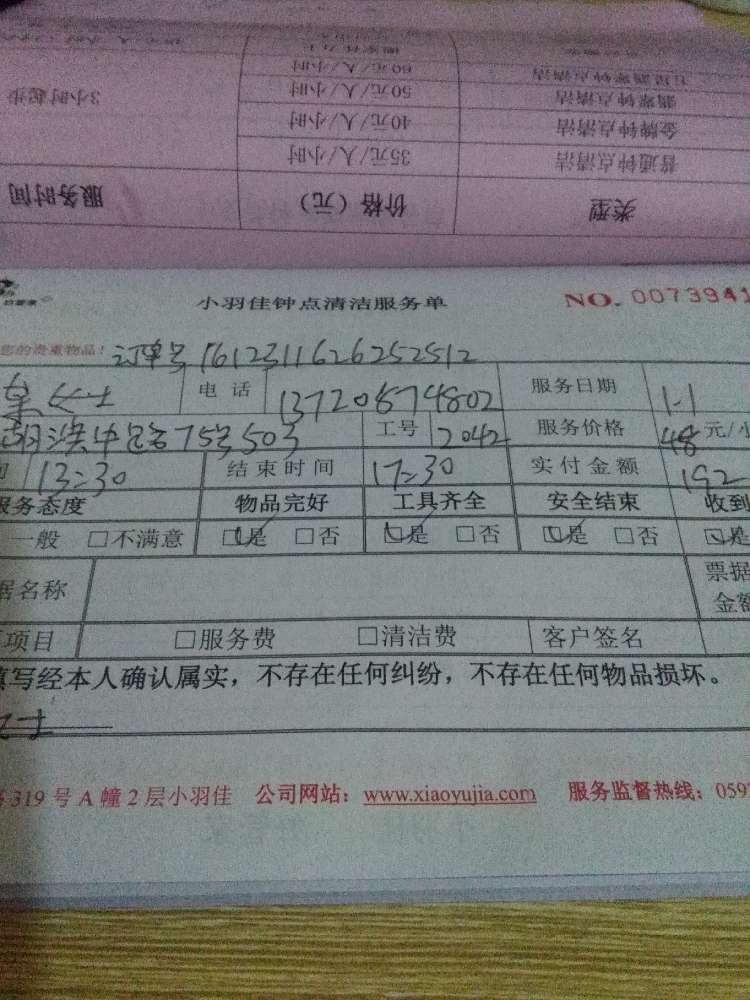 3小时起步
60元/人/小时
翡翠钟点清洁 50元/人/小时
金牌钟点清洁 40元/人/小时
普通钟点清洁 35元/人/小时
类型 价格（元） 服务时间
小羽佳钟点清洁服务单 NO. 0073941
您的贵重物品! 订单号 1612311626252512
女士 电话 13720874802 服务日期 1-1
75号503 工号 2042 服务价格 48 元/小
13:30 结束时间 17:30 实付金额 192
服务态度 物品完好 工具齐全 安全结束 收到
一般 □不满意 ☑是 □否 ☑是 □否 ☑是 □否 ☑是
据名称 票据
金额
项目 □服务费 □清洁费 客户签名
填写经本人确认属实，不存在任何纠纷，不存在任何物品损坏。
319号A幢2层小羽佳 公司网站：www.xiaoyujia.com 服务监督热线：059